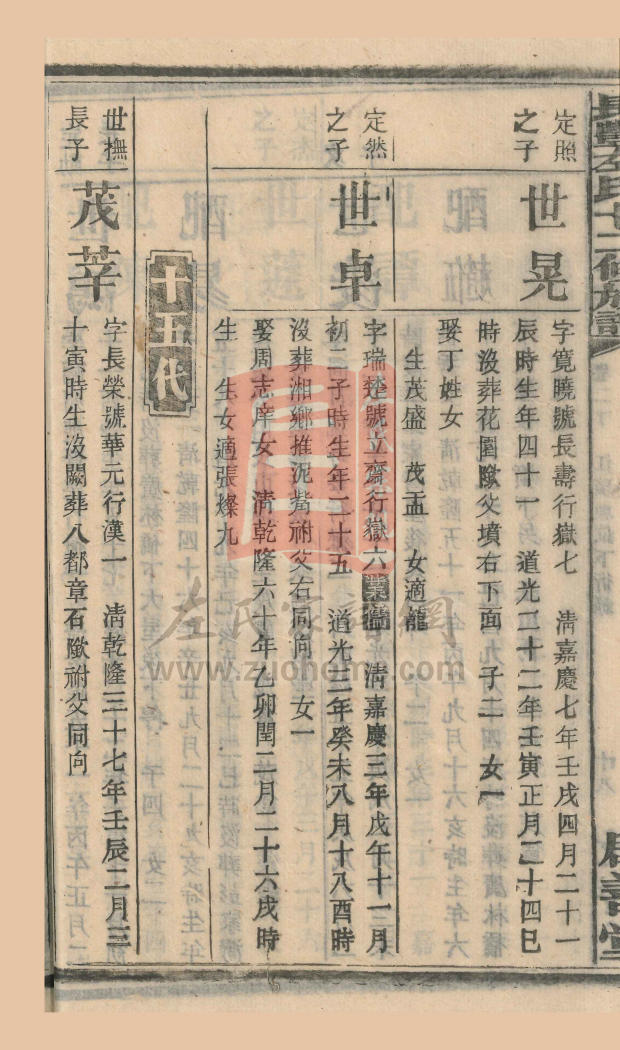 定照
之子
世晃
字寬曉號長壽行嶽七　清嘉慶七年壬戌四月二十一
辰時生年四十一　道光二十二年壬寅正月二十四巳
時沒葬花園墘父墳右下面　子二　女一
娶丁姓女
生茂盛　茂盂　女適龍
定然
之子
世卓
字瑞楚號立齋行嶽六業儒　清嘉慶三年戊午十一月
初二子時生年二十五　道光三年癸未八月十八酉時
沒葬湘鄉推泥觜祔父右同向　女一
娶周志庠女　清乾隆六十年乙卯閏二月二十六戌時
生　生女適張燦九
十五代
世撫
長子
茂莘
字長榮號華元行漢一　清乾隆三十七年壬辰二月三
十寅時生沒闕葬八都章石墘祔父同向
左氏家譜網
www.zuohome.com